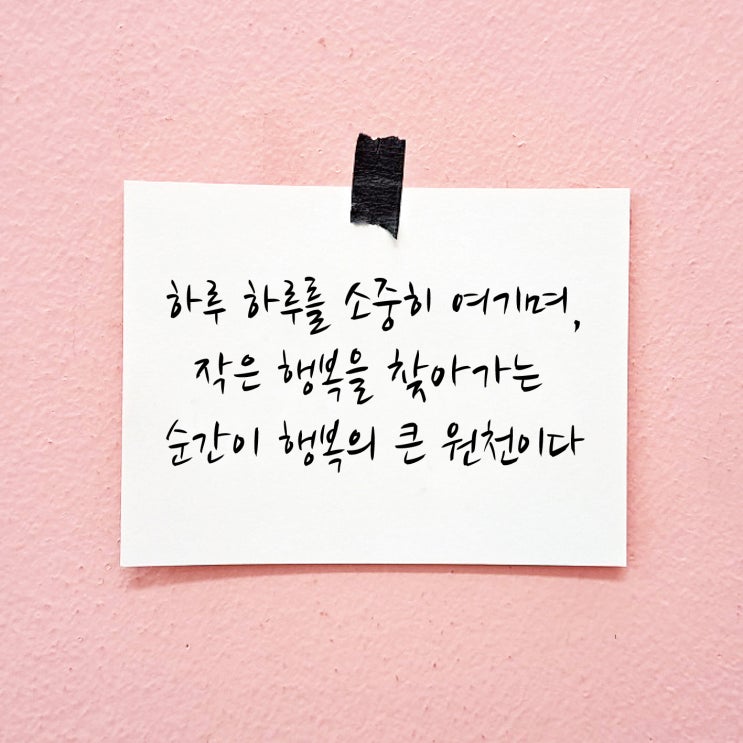 하루 하루를 소중히 여기며,
작은 행복을 찾아가는
순간이 행복의 큰 원천이다